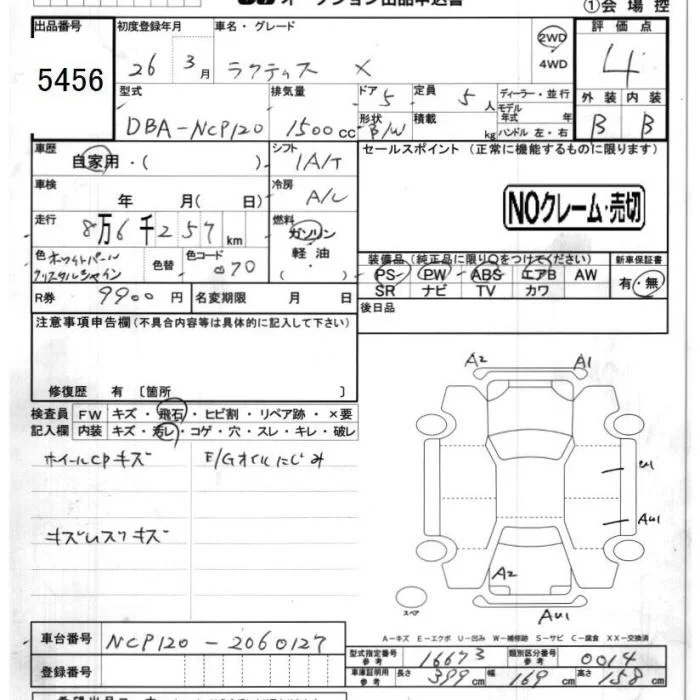 オークション出品申込書
①会場控
出品番号
5456
初度登録年月
26 3月
車名・グレード
ラクティス X
2WD
4WD
評価点
4
外装 内装
B B
型式
DBA-NCP120
排気量
1500cc
ドア 5
形状 B/W
定員 5人
積載 kg
ディーラー・並行
モデル年式 年
ハンドル 左・右
車歴
自家用・( )
シフト
IA/T
車検
年 月( 日)
冷房
A/C
走行
8万6千257km
燃料
ガソリン
軽油
・( )
色 ホワイトパールクリスタルシャイン
色替
色コード 070
R券 9900円
名変期限 月 日
セールスポイント (正常に機能するものに限ります)
NOクレーム・売切
装備品(純正品に限り○をつけてください)
新車保証書
PS PW ABS エアB AW
SR ナビ TV カワ
有・無
後日品
注意事項申告欄(不具合内容等は具体的に記入して下さい)
修復歴 有〔箇所 〕
検査員記入欄
FW キズ・飛石・ヒビ割・リペア跡・×要
内装 キズ・汚レ・コゲ・穴・スレ・キレ・破レ
ホイールCPキズ
E/Gオイルにじみ
キズムスリキズ
A2 A1
U1
AU1
A2
AU1
スペア
A−キズ E−エクボ U−凹み W−補修跡 S−サビ C−腐食 XX−交換済
車台番号
NCP120-2060127
登録番号
型式指定番号 参考 16673
類別区分番号 参考 0014
車庫証明用 参考 長さ 399cm 幅 169cm 高さ 158cm